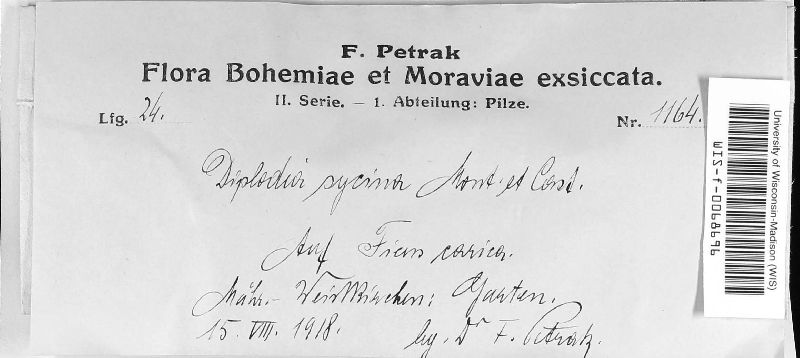 F. Petrak
Flora Bohemiae et Moraviae exsiccata.
II. Serie. – 1. Abteilung: Pilze.
Lfg. 24.
Nr. 1164.
Diplodia sycina Mont. et Cast.
Auf Ficus carica.
Mähr.-Weisskirchen: Garten.
15. VIII. 1918. lg. Dr F. Petrak.
University of Wisconsin-Madison (WIS)
WIS-f-0068696